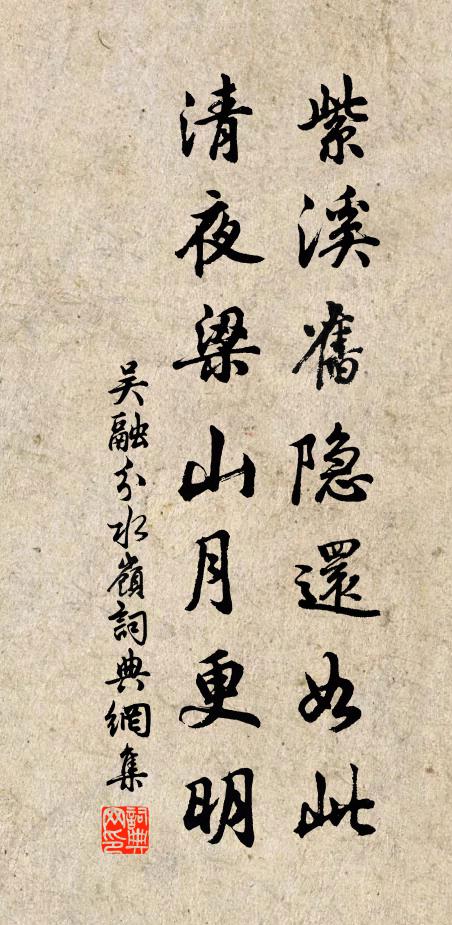 紫溪舊隐還如此
清夜梁山月更明
吴融分水嶺詞典網集
詞典网印